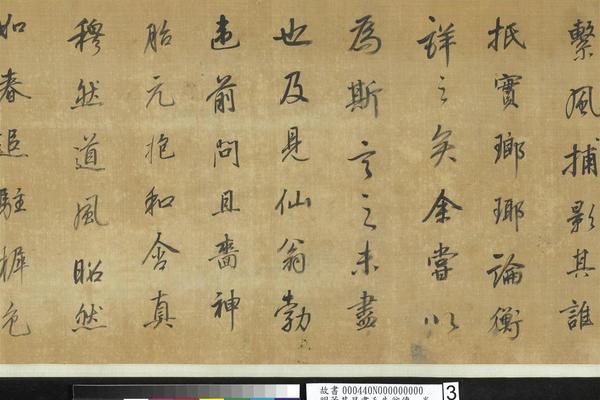 繫風捕影其誰
抵實瑯瑘論衡
詳之矣余嘗以
為斯言之未盡
也及見仙翁勃
遽前問且嗇神
胎元抱和含真
穆然道風昭然
如春追駐樨色
故書000440N000000000
3